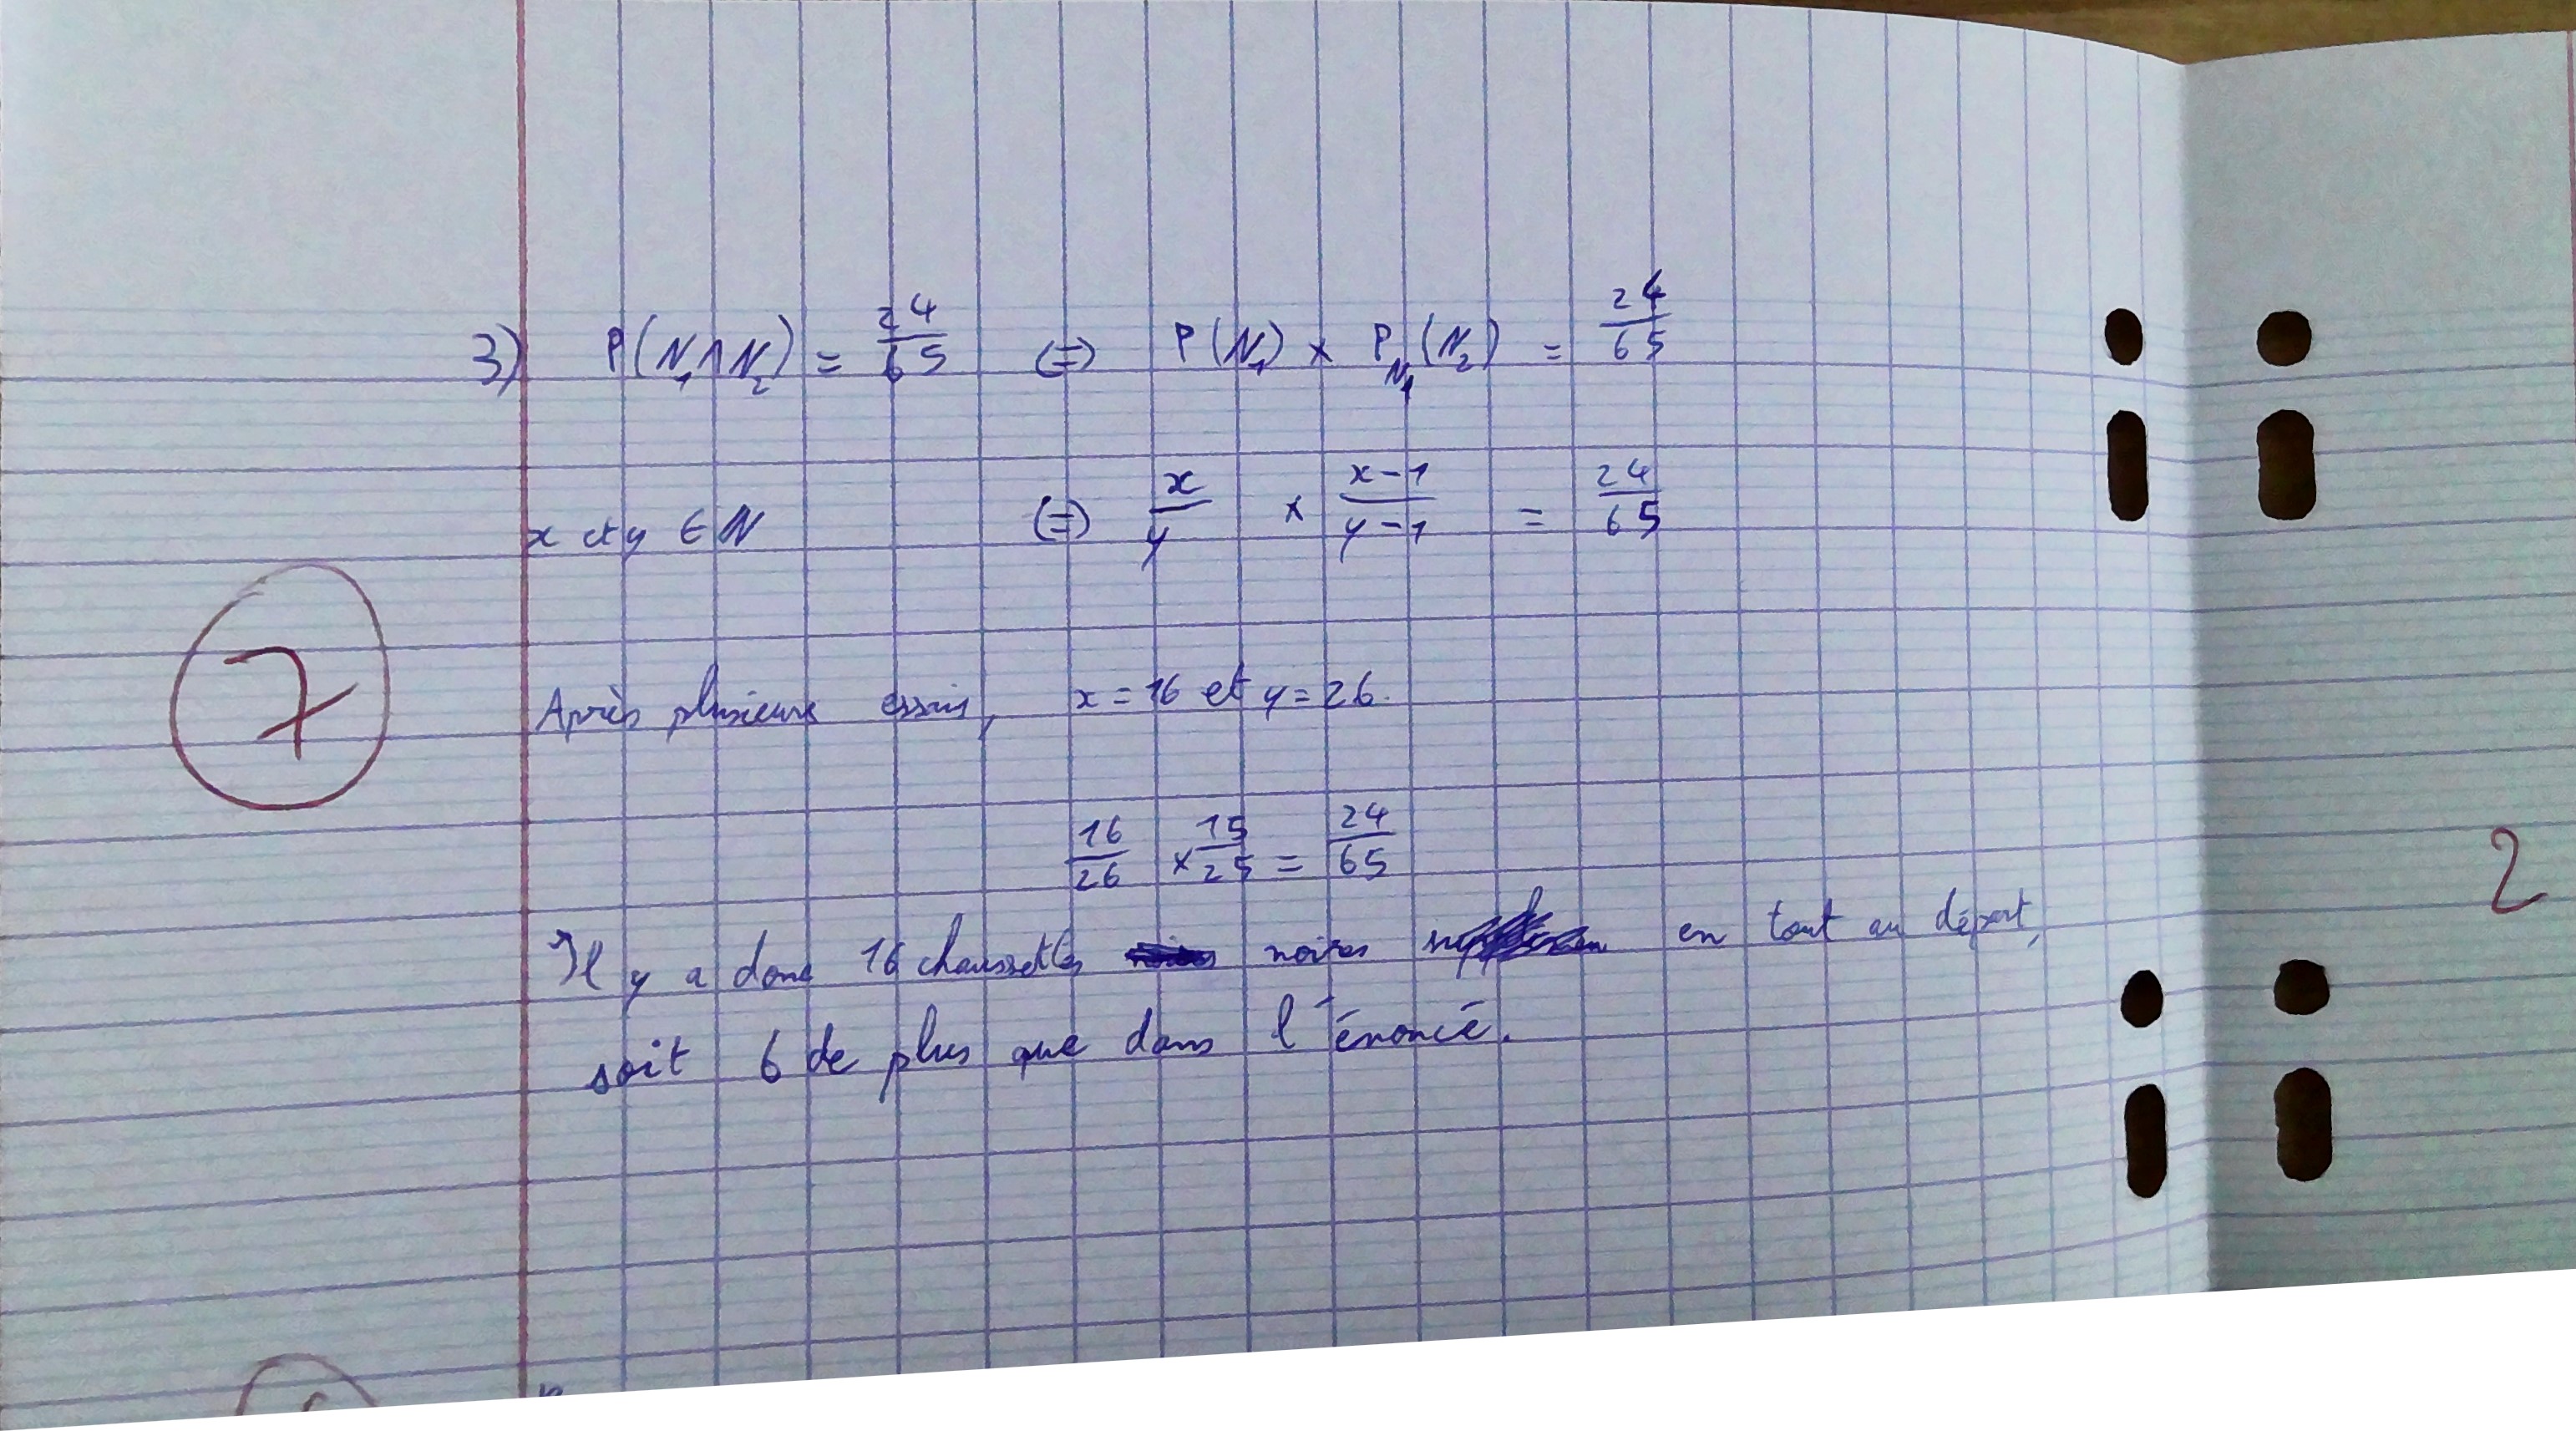 3) P(N₁∩N₂) = 24/65 (=) P(N₁) × P_N₁(N₂) = 24/65
x et y ∈ N (=) x/y × x-1/y-1 = 24/65
7
Après plusieurs essais, x = 16 et y = 26.
16/26 × 15/25 = 24/65
2
Il y a donc 16 chaussettes noires en tout au départ,
soit 6 de plus que dans l'énoncé.